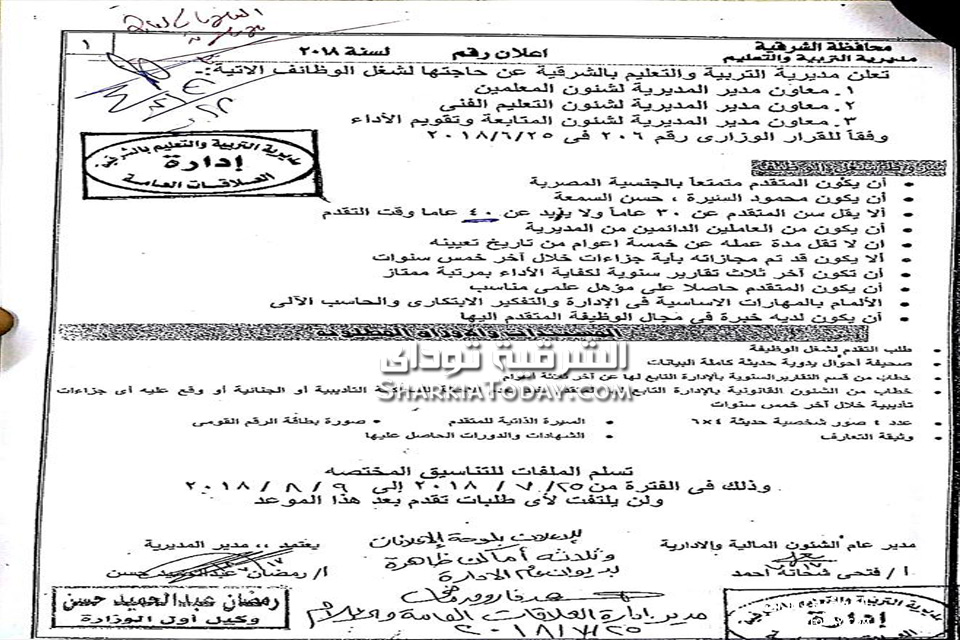 محافظة الشرقية
مديرية التربية والتعليم
اعلان رقم لسنة ٢٠١٨
١
تعلن مديرية التربية والتعليم بالشرقية عن حاجتها لشغل الوظائف الاتية:-
١. معاون مدير المديرية لشئون المعلمين
٢. معاون مدير المديرية لشئون التعليم الفنى
٣. معاون مدير المديرية لشئون المتابعة وتقويم الأداء
وفقاً للقرار الوزارى رقم ٢٠٦ فى ٢٠١٨/٦/٢٥
مديرية التربية والتعليم بالشرقية
إدارة
العلاقات العامة
• أن يكون المتقدم متمتعاً بالجنسية المصرية
• أن يكون محمود السيرة ، حسن السمعة
• ألا يقل سن المتقدم عن ٣٠ عاماً ولا يزيد عن ٤٠ عاما وقت التقدم
• أن يكون من العاملين الدائمين من المديرية
• ان لا تقل مدة عمله عن خمسة اعوام من تاريخ تعيينه
• ألا يكون قد تم مجازاته بأية جزاءات خلال آخر خمس سنوات
• أن تكون آخر ثلاث تقارير سنوية لكفاية الأداء بمرتبة ممتاز
• أن يكون المتقدم حاصلا على مؤهل علمى مناسب
• الألمام بالمهارات الاساسية فى الإدارة والتفكير الابتكارى والحاسب الآلى
• أن يكون لديه خبرة فى مجال الوظيفة المتقدم اليها
المستندات والأوراق المطلوبة
• طلب التقدم لشغل الوظيفة
• صحيفة أحوال يدوية حديثة كاملة البيانات
الشرقية توداى
SHARKIATODAY.COM
• خطاب من قسم التقارير السنوية بالإدارة التابع لها عن آخر ثلاثة أعوام
• خطاب من الشئون القانونية بالإدارة التابع التأديبية أو الجنائية أو وقع عليه أى جزاءات
تأديبية خلال آخر خمس سنوات
• عدد ٤ صور شخصية حديثة ٤×٦ • السيرة الذاتية للمتقدم • صورة بطاقة الرقم القومى
• وثيقة التعارف • الشهادات والدورات الحاصل عليها
تسلم الملفات للتناسيق المختصه
وذلك فى الفترة من ٢٥/ ٧ / ٢٠١٨ إلى ٩ / ٨ / ٢٠١٨
ولن يلتفت لأى طلبات تقدم بعد هذا الموعد
مدير عام الشئون المالية والادارية
أ / فتحى شحاتة احمد
للإعلان بلوحة الإعلانات
وثلاثة أماكن ظاهرة
بديوان عام الإدارة
مدير إدارة العلاقات العامة والإعلام
٢٠١٨/٧/٢٥
يعتمد ،، مدير المديرية
أ/ رمضان عبدالحميد حسن
رمضان عبدالحميد حسن
وكيل أول الوزارة
مديرية التربية والتعليم
إدارة